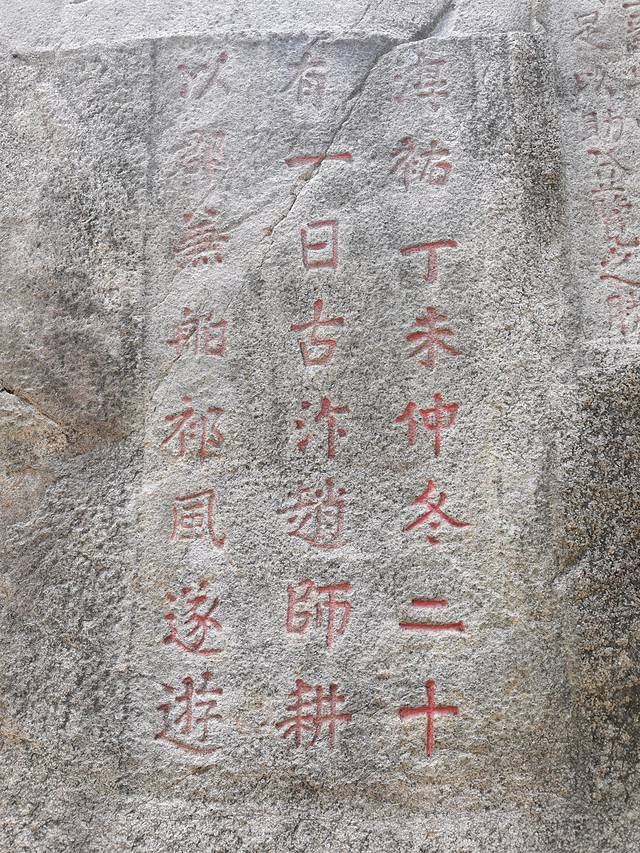 足以助
淳祐丁未仲冬二十
有一日古汴趙師耕
以郡兼舶祈風遂遊